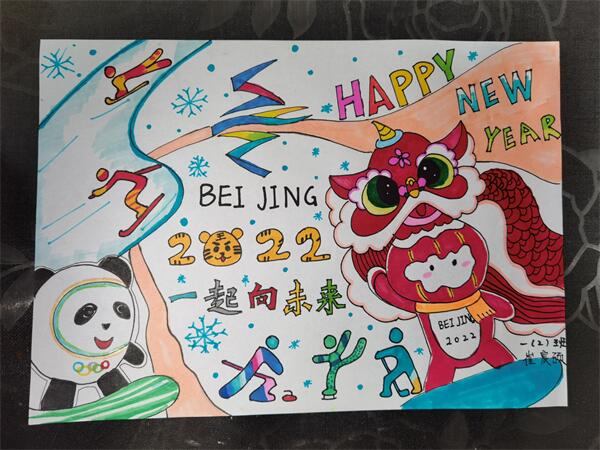 HAPPY
NEW
YEAR
BEI JING
2022
一起向未来
BEIJING
2022
一(2)班